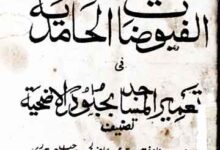 الفيوضات الحامدية
فى
تعمير المساجد بجلود الاضحية
تصنيف